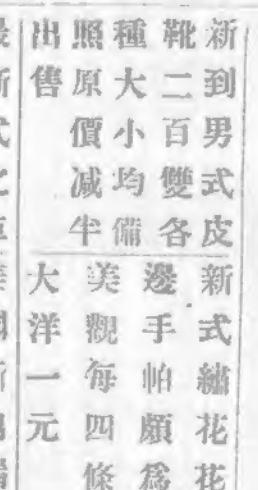 新到男式皮
靴二百雙各
種大小均備
照原價減半
出售
新式繡花花
邊手帕頗爲
美觀每四條
大洋一元